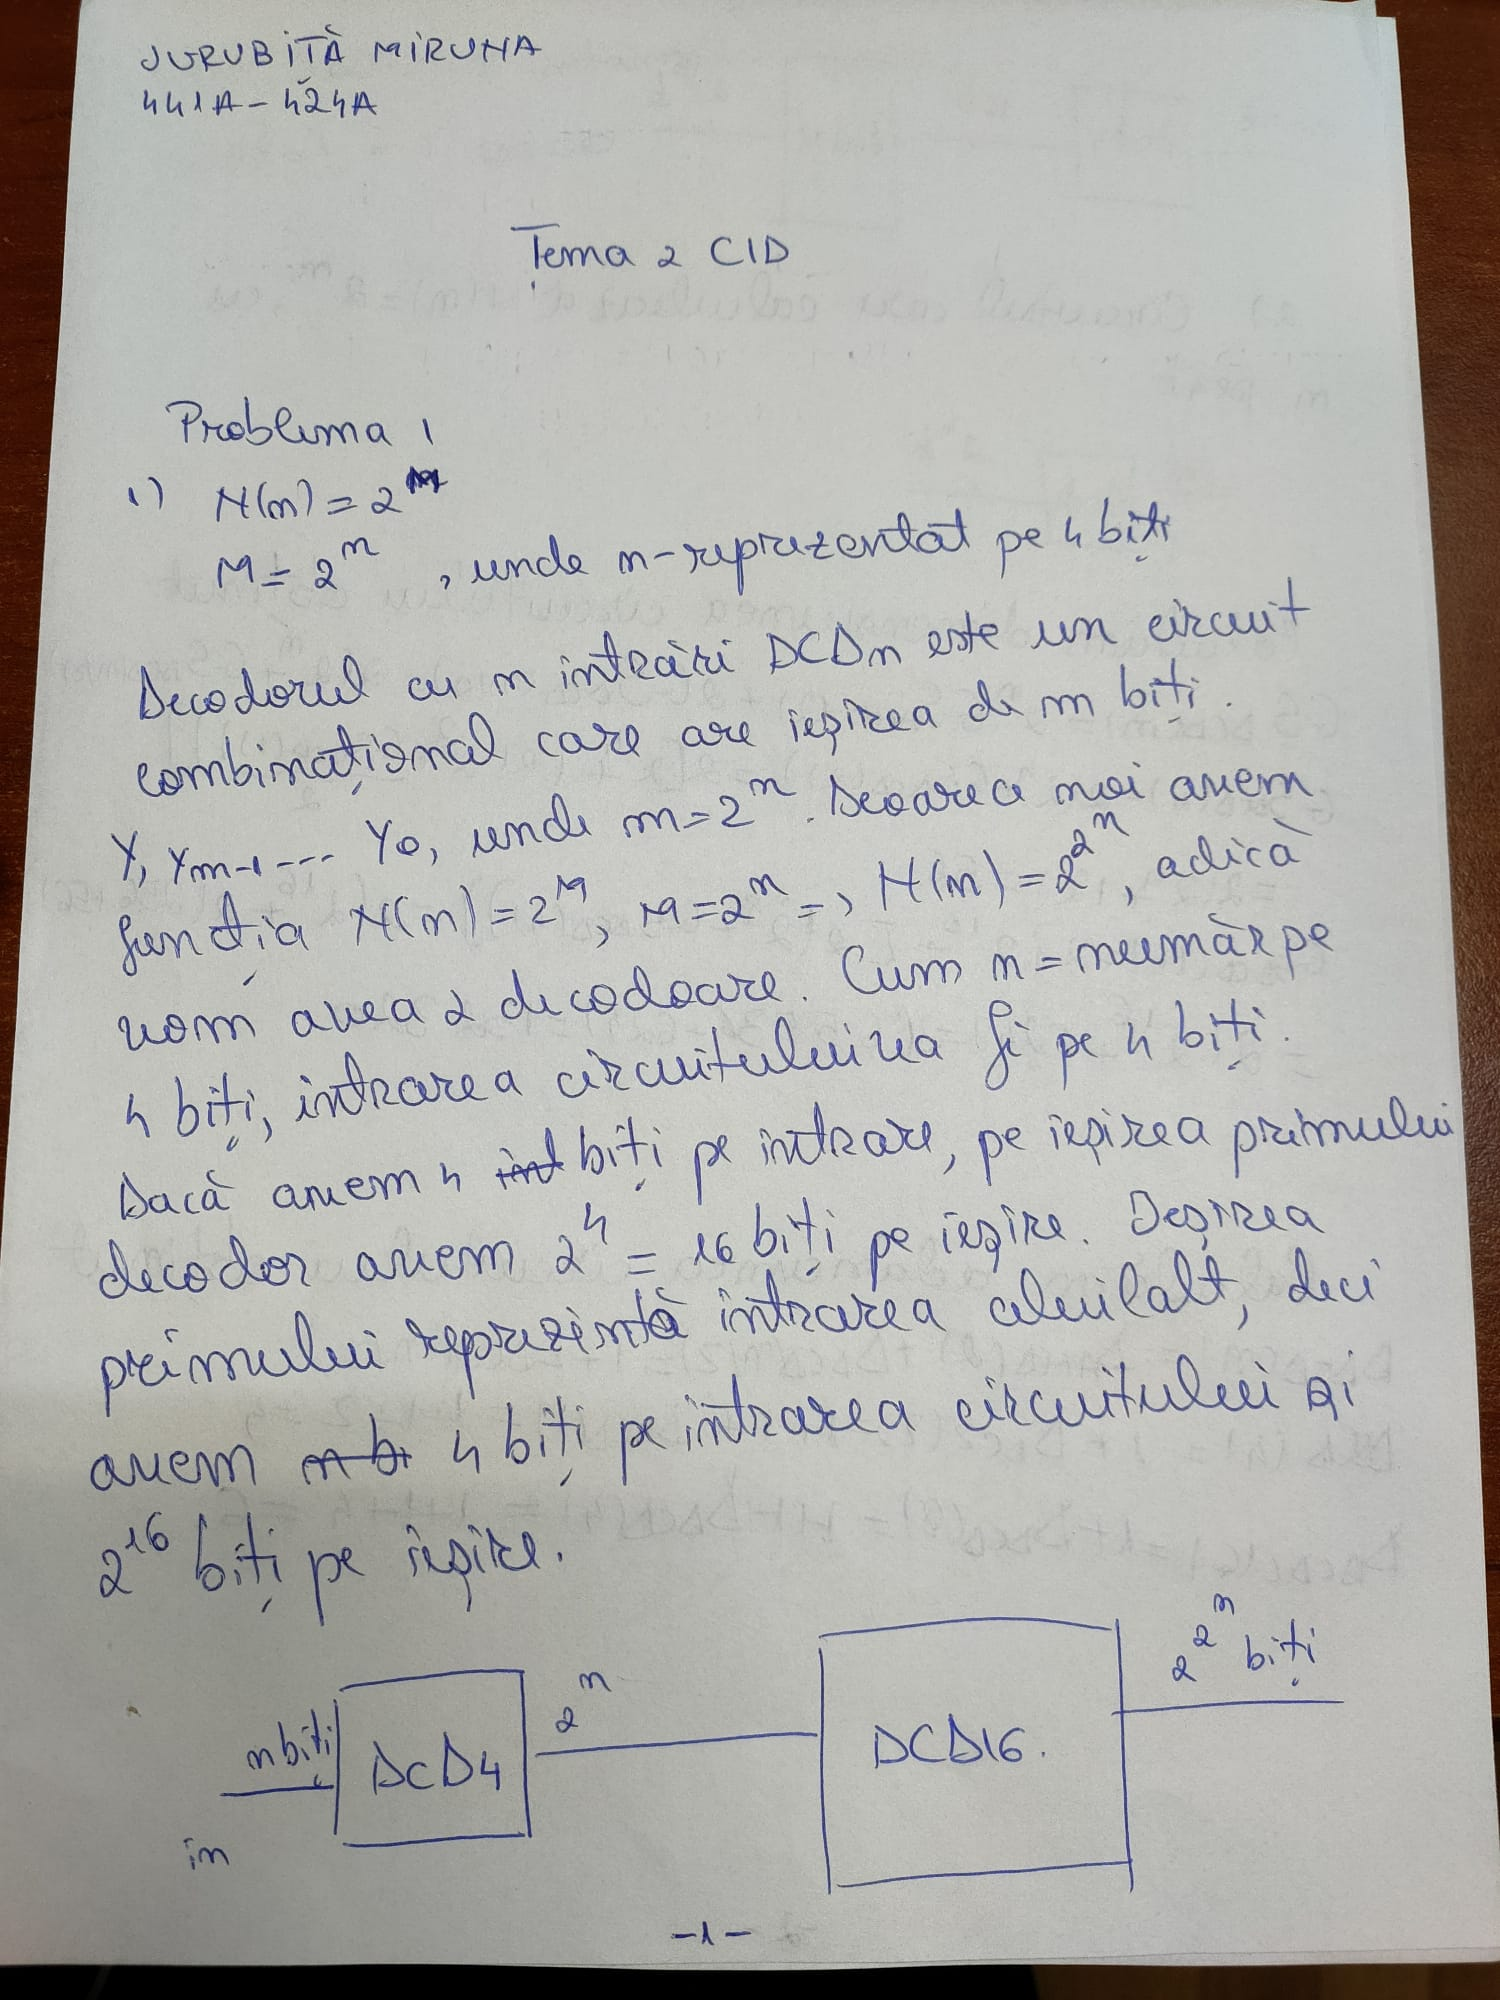 JURUBIȚĂ MIRUNA
441A - 424A
Tema 2 CID
Problema 1
1) N(n) = 2^M
M = 2^n, unde n-reprezentat pe 4 biți
Decodorul cu n intrări DCDn este un circuit
combinațional care are ieșirea de m biți.
Y, Ym-1 --- Y0, unde m = 2^n. Deoarece noi avem
funcția N(n) = 2^M, M = 2^n => N(n) = 2^2^n, adică
vom avea 2 decodoare. Cum n = număr pe
4 biți, intrarea circuitului va fi pe 4 biți.
Dacă avem 4 biți pe intrare, pe ieșirea primului
decodor avem 2^4 = 16 biți pe ieșire. Ieșirea
primului reprezintă intrarea celuilalt, deci
avem 4 biți pe intrarea circuitului și
2^16 biți pe ieșire.
n biți DCD4 2^n DCD16. 2^2^n biți
in
-1-